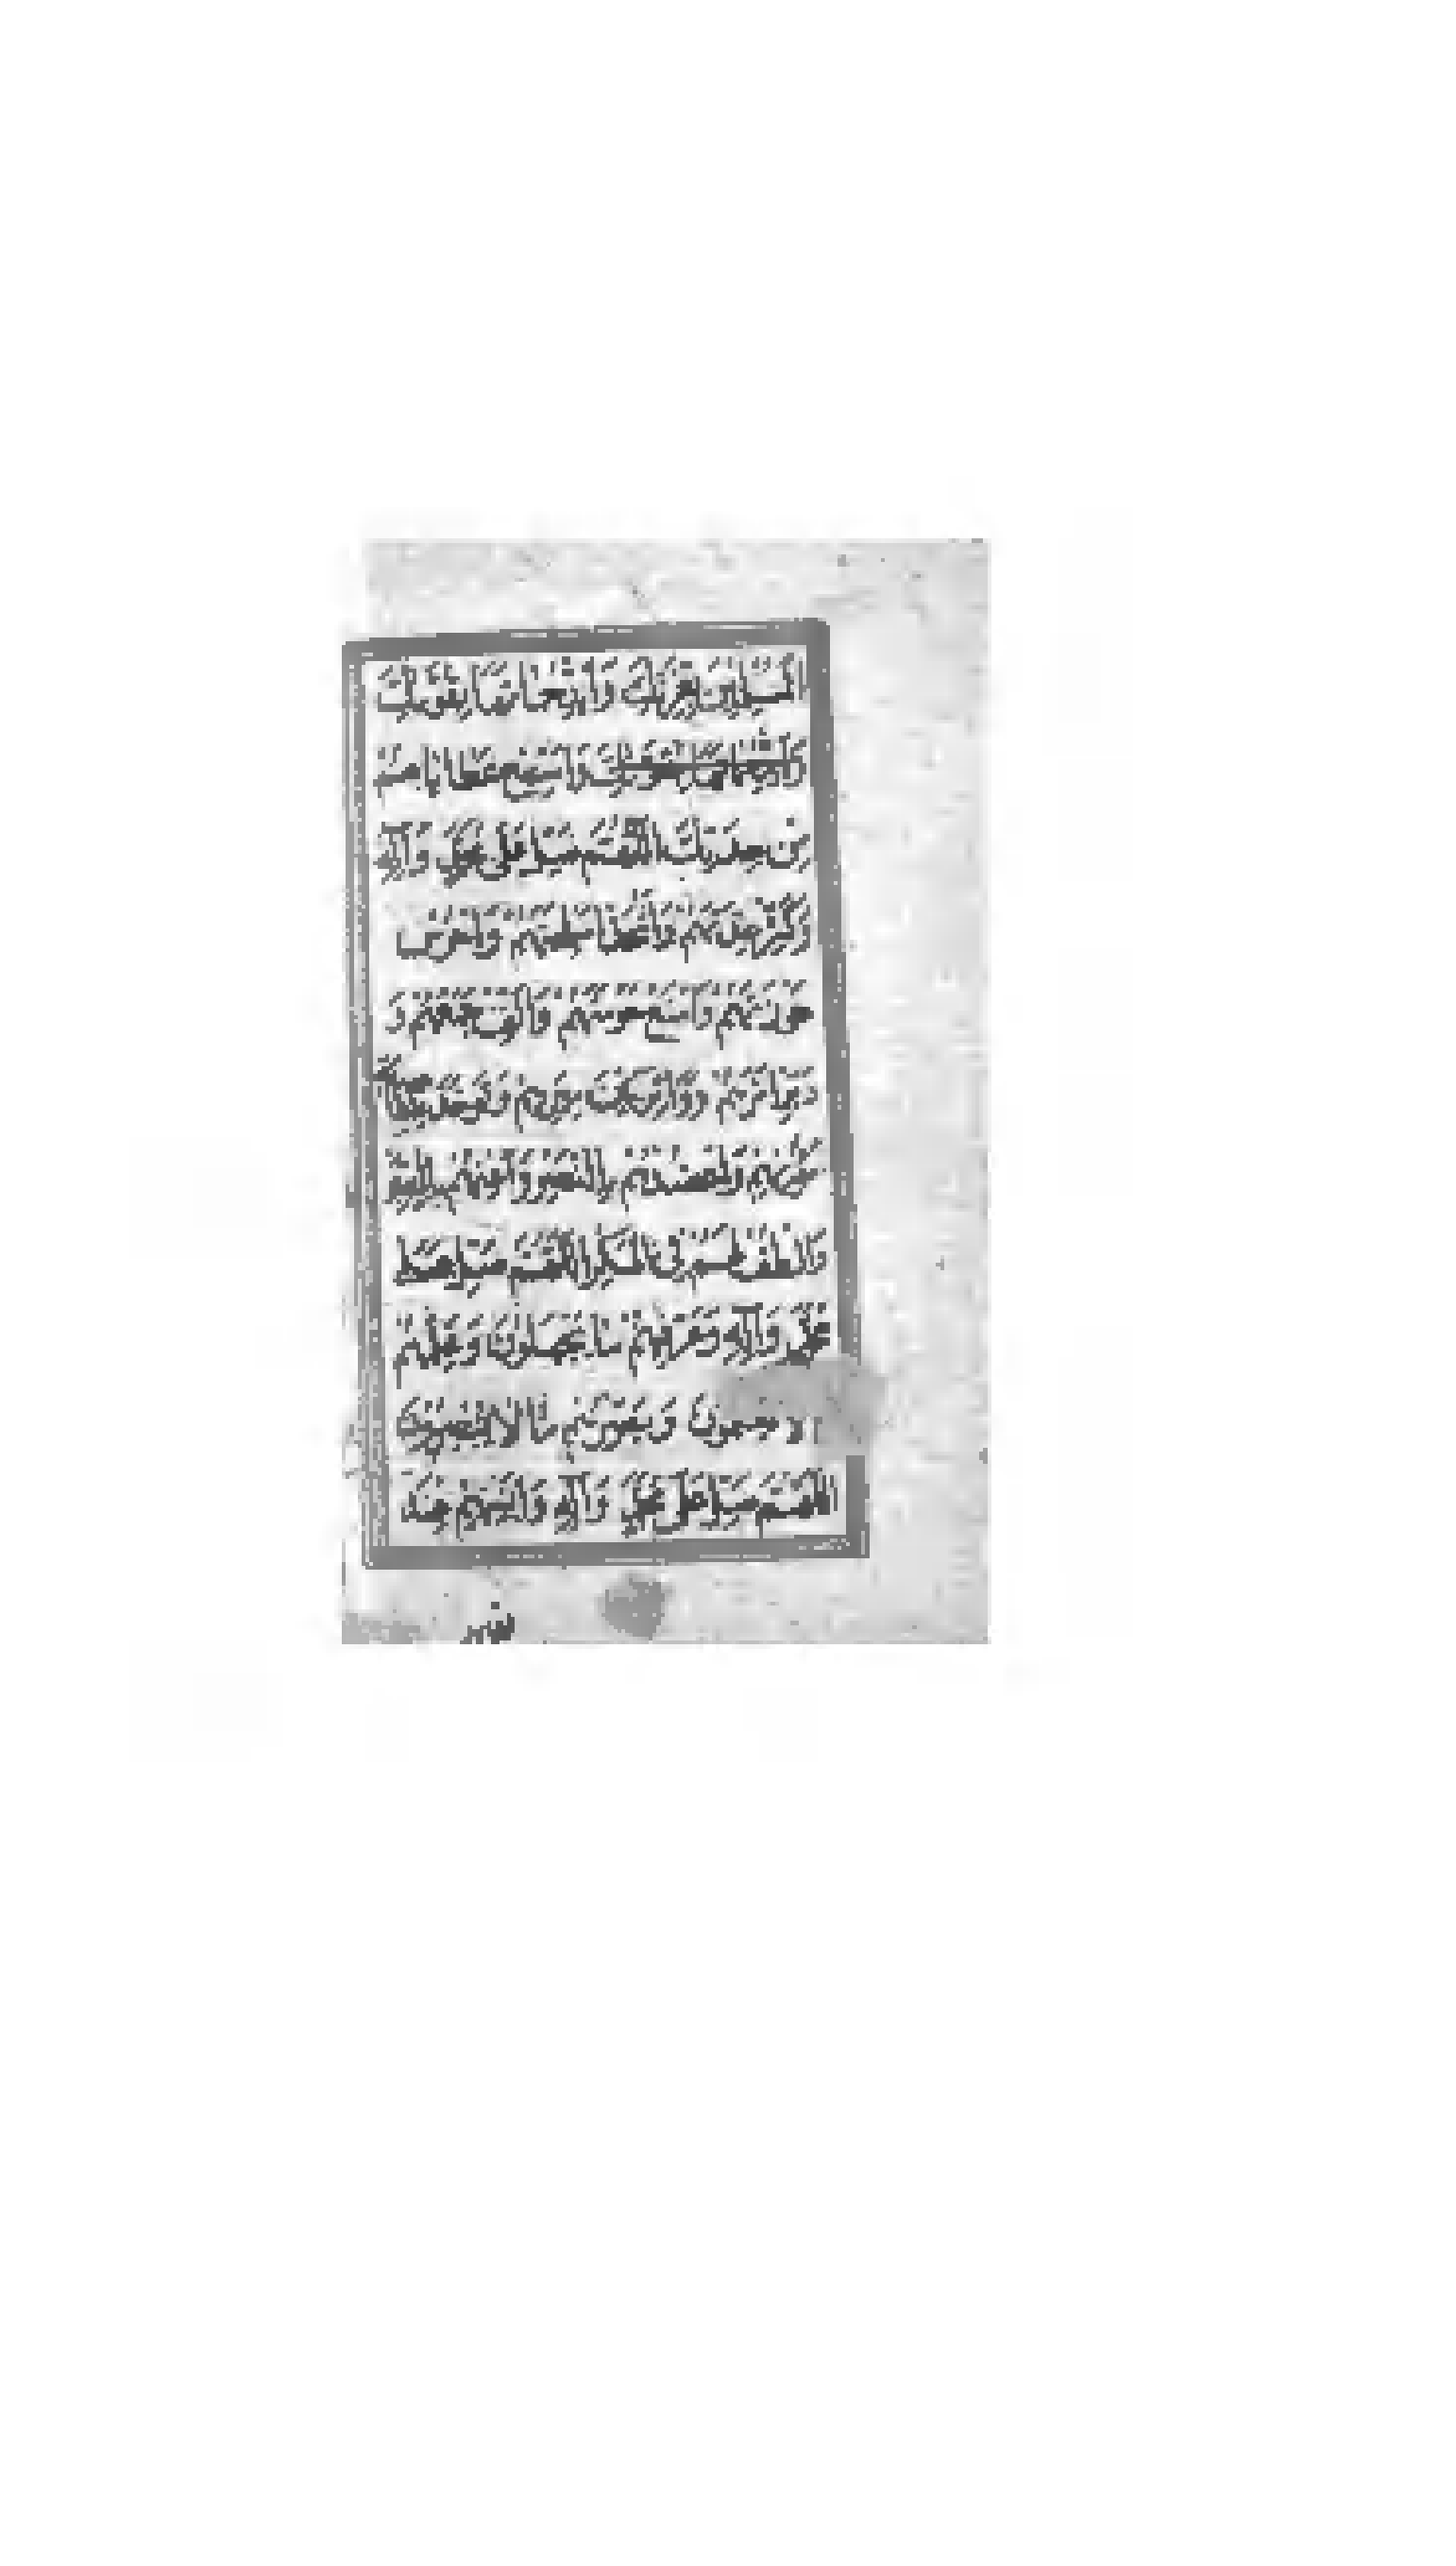 المسلمين بعزتك وايد حماتها بقوتك
واسبغ عطاياهم
من جدتك اللهم صل على محمد وآله
وكثر عدتهم واشحذ اسلحتهم واحرس
حوزتهم وامنع حومتهم والف جمعهم و
دبر امرهم وواتر بين ميرهم وتوحد بكفاية
مؤنهم واعضدهم بالنصر واعنهم بالصبر
والطف لهم في المكر اللهم صل على
محمد وآله وعرفهم ما يجهلون وعلمهم
ما لا يعلمون وبصرهم ما لا يبصرون
اللهم صل على محمد وآله وانسهم عند